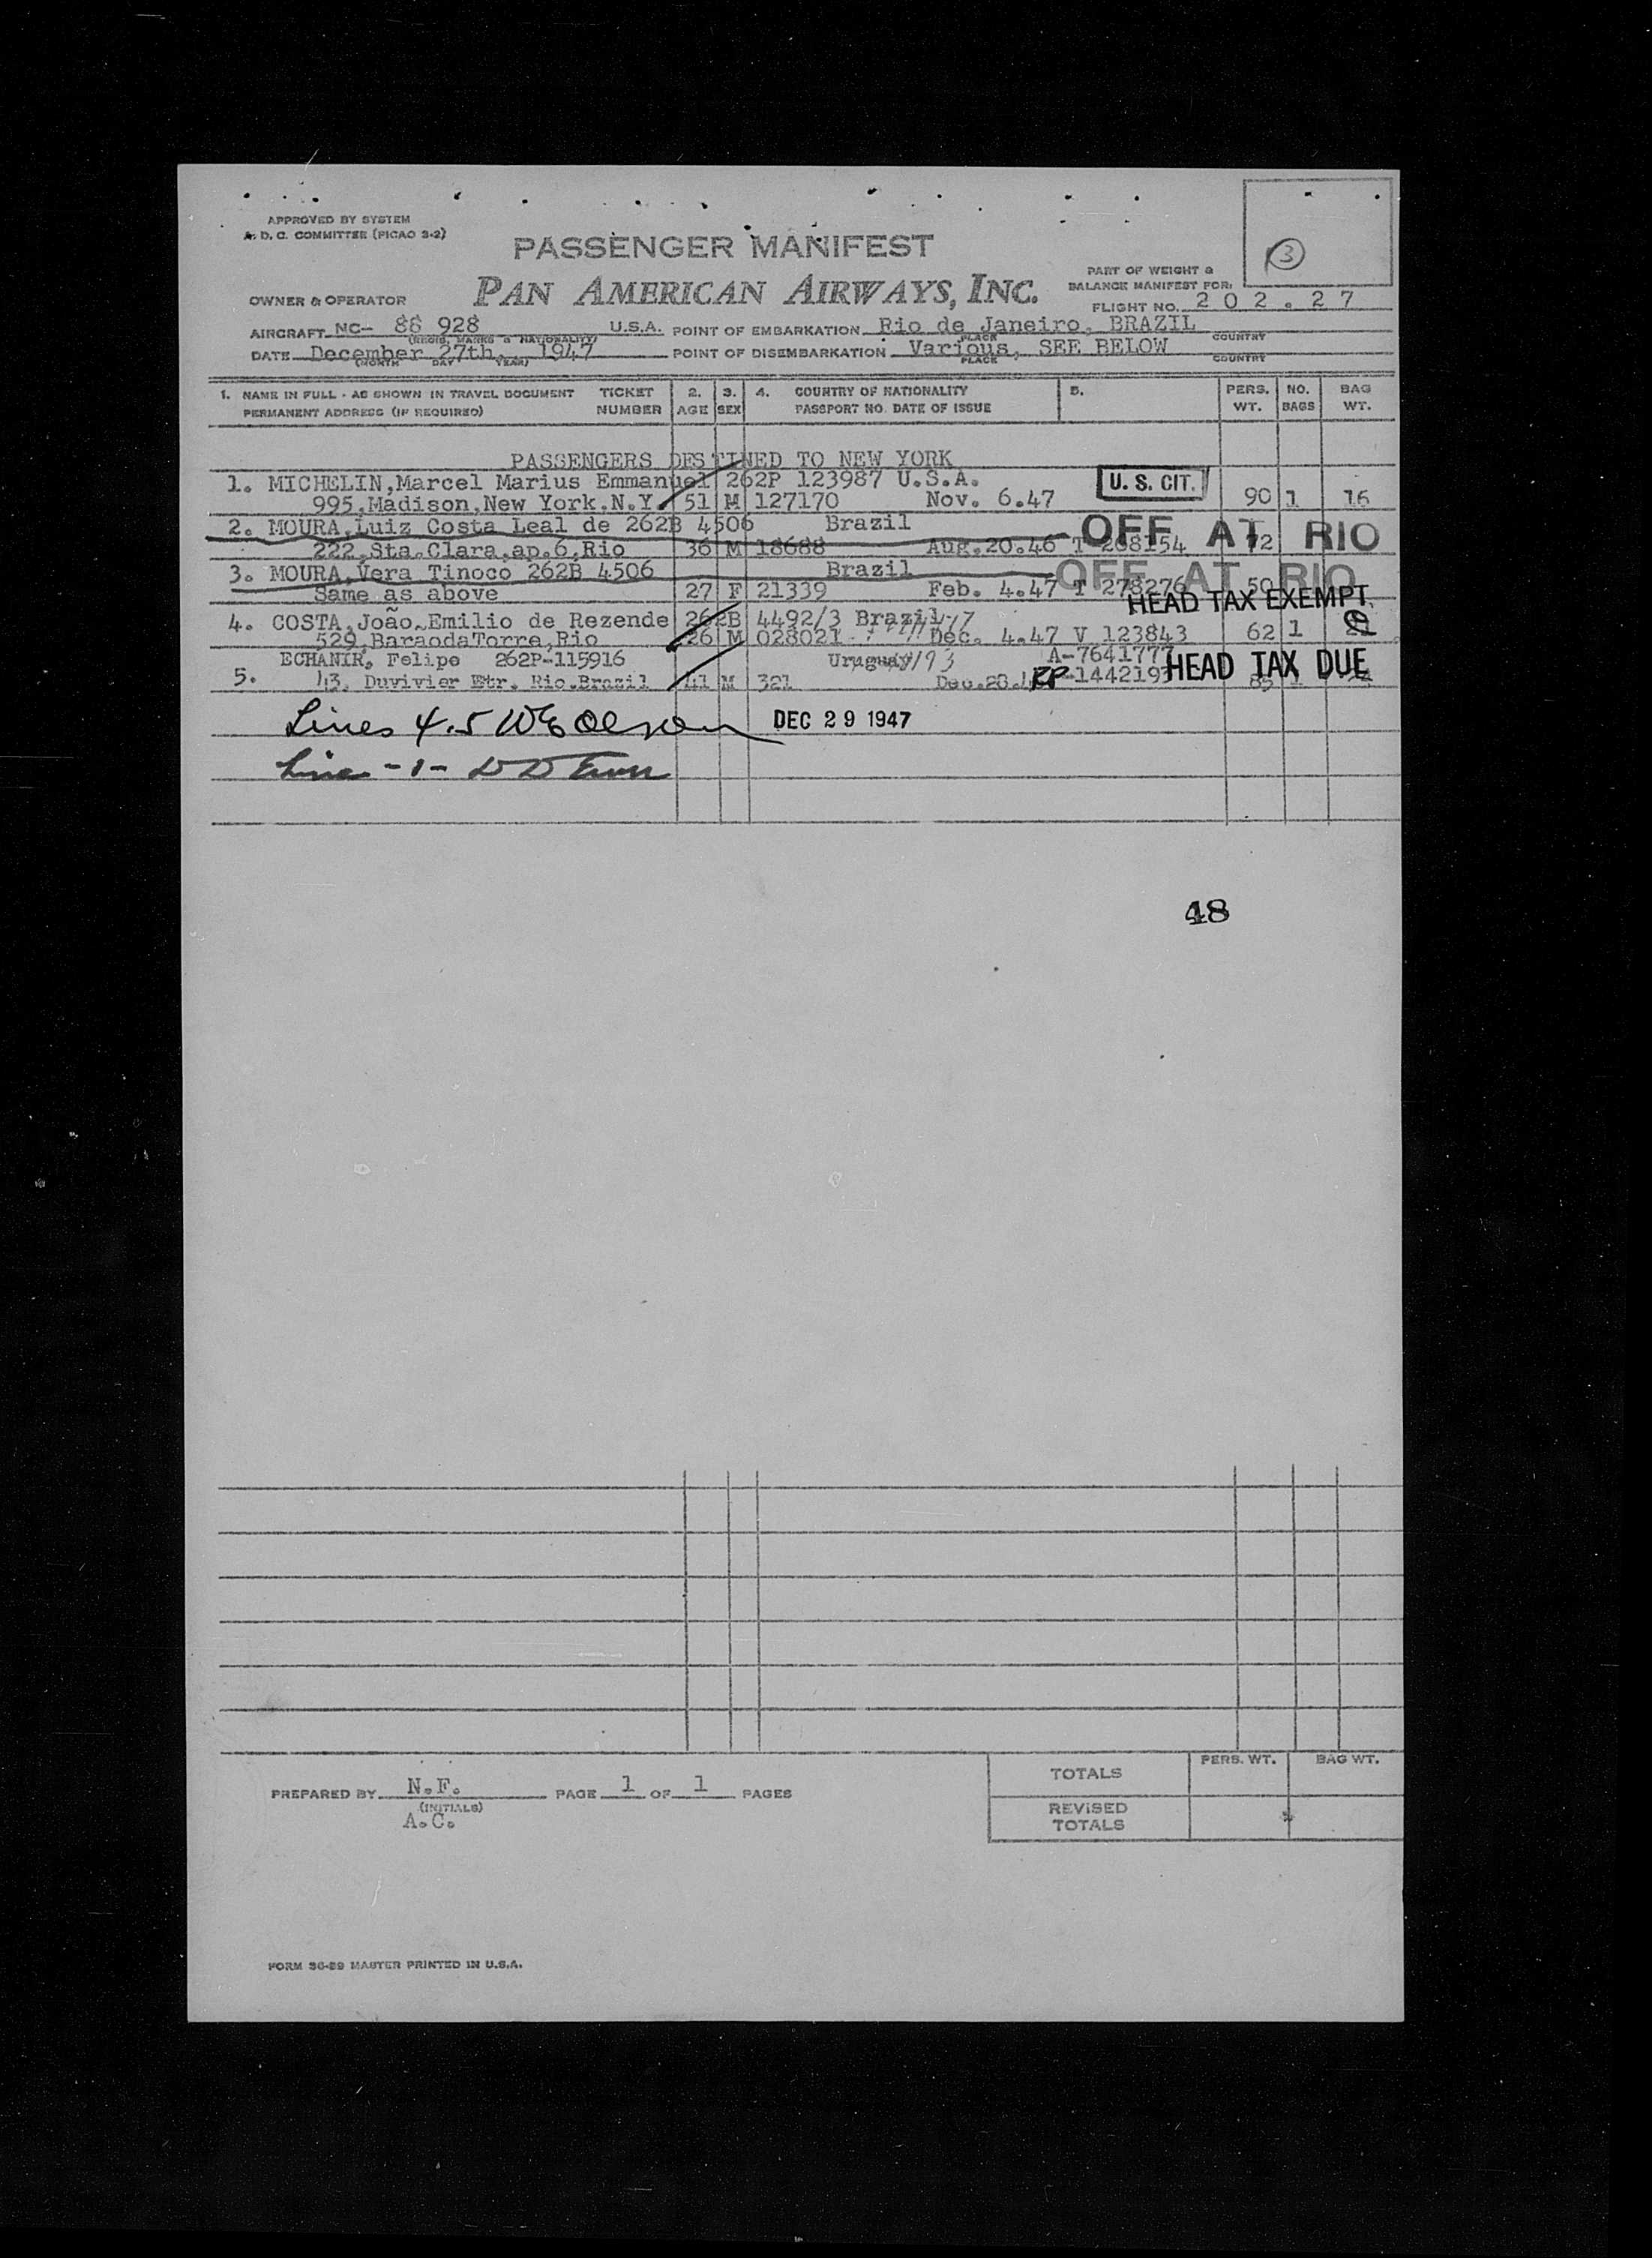 APPROVED BY SYSTEM
A. D. C. COMMITTEE (PICAO 3-2)
3
PASSENGER MANIFEST
PART OF WEIGHT &
BALANCE MANIFEST FOR:
OWNER & OPERATOR PAN AMERICAN AIRWAYS, INC.
FLIGHT NO. 202.27
AIRCRAFT NC- 88 928 U.S.A. POINT OF EMBARKATION Rio de Janeiro, BRAZIL
(REGIS. MARKS & NATIONALITY) PLACE COUNTRY
DATE December 27th, 1947 POINT OF DISEMBARKATION Various, SEE BELOW
(MONTH DAY YEAR) PLACE COUNTRY
1. NAME IN FULL - AS SHOWN IN TRAVEL DOCUMENT TICKET 2. 3. 4. COUNTRY OF NATIONALITY 5. PERS. NO. BAG
PERMANENT ADDRESS (IF REQUIRED) NUMBER AGE SEX PASSPORT NO. DATE OF ISSUE WT. BAGS WT.
PASSENGERS DESTINED TO NEW YORK
1. MICHELIN,Marcel Marius Emmanuel 262P 123987 U.S.A. U. S. CIT.
995,Madison,New York,N.Y. 51 M 127170 Nov. 6.47 90 1 16
2. MOURA,Luiz Costa Leal de 262B 4506 Brazil OFF AT RIO
222,Sta.Clara,ap.6,Rio 36 M 18688 Aug.20.46 T 268154 72
3. MOURA,Vera Tinoco 262B 4506 Brazil OFF AT RIO
Same as above 27 F 21339 Feb. 4.47 T 278276 50
HEAD TAX EXEMPT
4. COSTA,João Emilio de Rezende 262B 4492/3 Brazil
529,BaraodaTorre,Rio 26 M 028021 Dec. 4.47 V 123843 62 1
ECHANIR, Felipe 262P-115916 Uruguay A-7641777 HEAD TAX DUE
5. 43, Duvivier Etr. Rio.Brazil 41 M 321 Dec.28. 85 1
Lines 4.5 WE Olson DEC 29 1947
Line -1- DD
48
TOTALS PERS. WT. BAG WT.
PREPARED BY N.F. PAGE 1 OF 1 PAGES
(INITIALS)
A.C.
REVISED
TOTALS
FORM 36-29 MASTER PRINTED IN U.S.A.